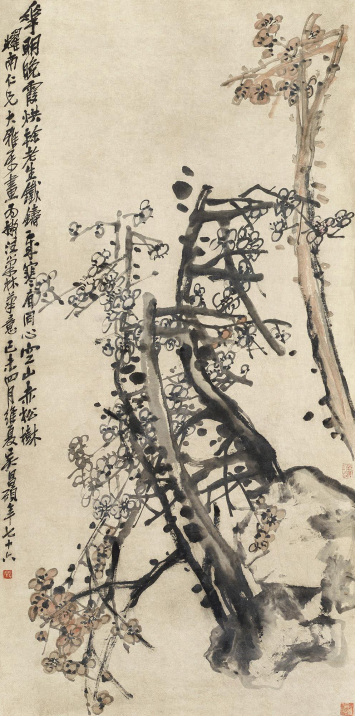 華明晚霞烘榦老生鐵鑄歲寒有同心空山赤松樹
耀南仁兄大雅屬畫為撫汪巢林筆意己未四月維夏吳昌碩年七十六